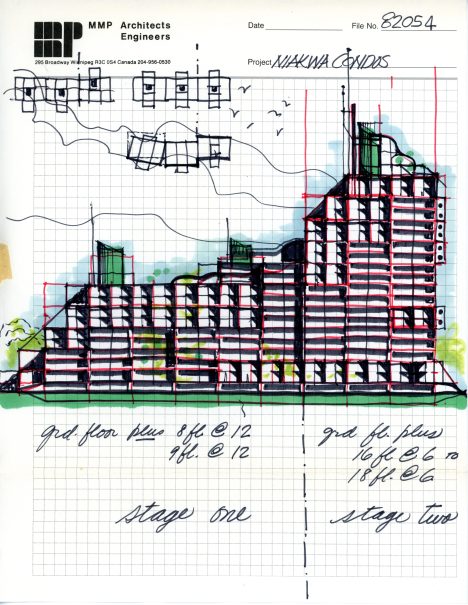 MMP Architects
Engineers
Date
File No. 82054
295 Broadway Winnipeg R3C 0S4 Canada 204-956-0530
Project NIAKWA CONDOS
grd. floor plus 8 fl @ 12
9 fl. @ 12
stage one
grd fl. plus
16 fl @ 6 to
18 fl. @ 6
stage two